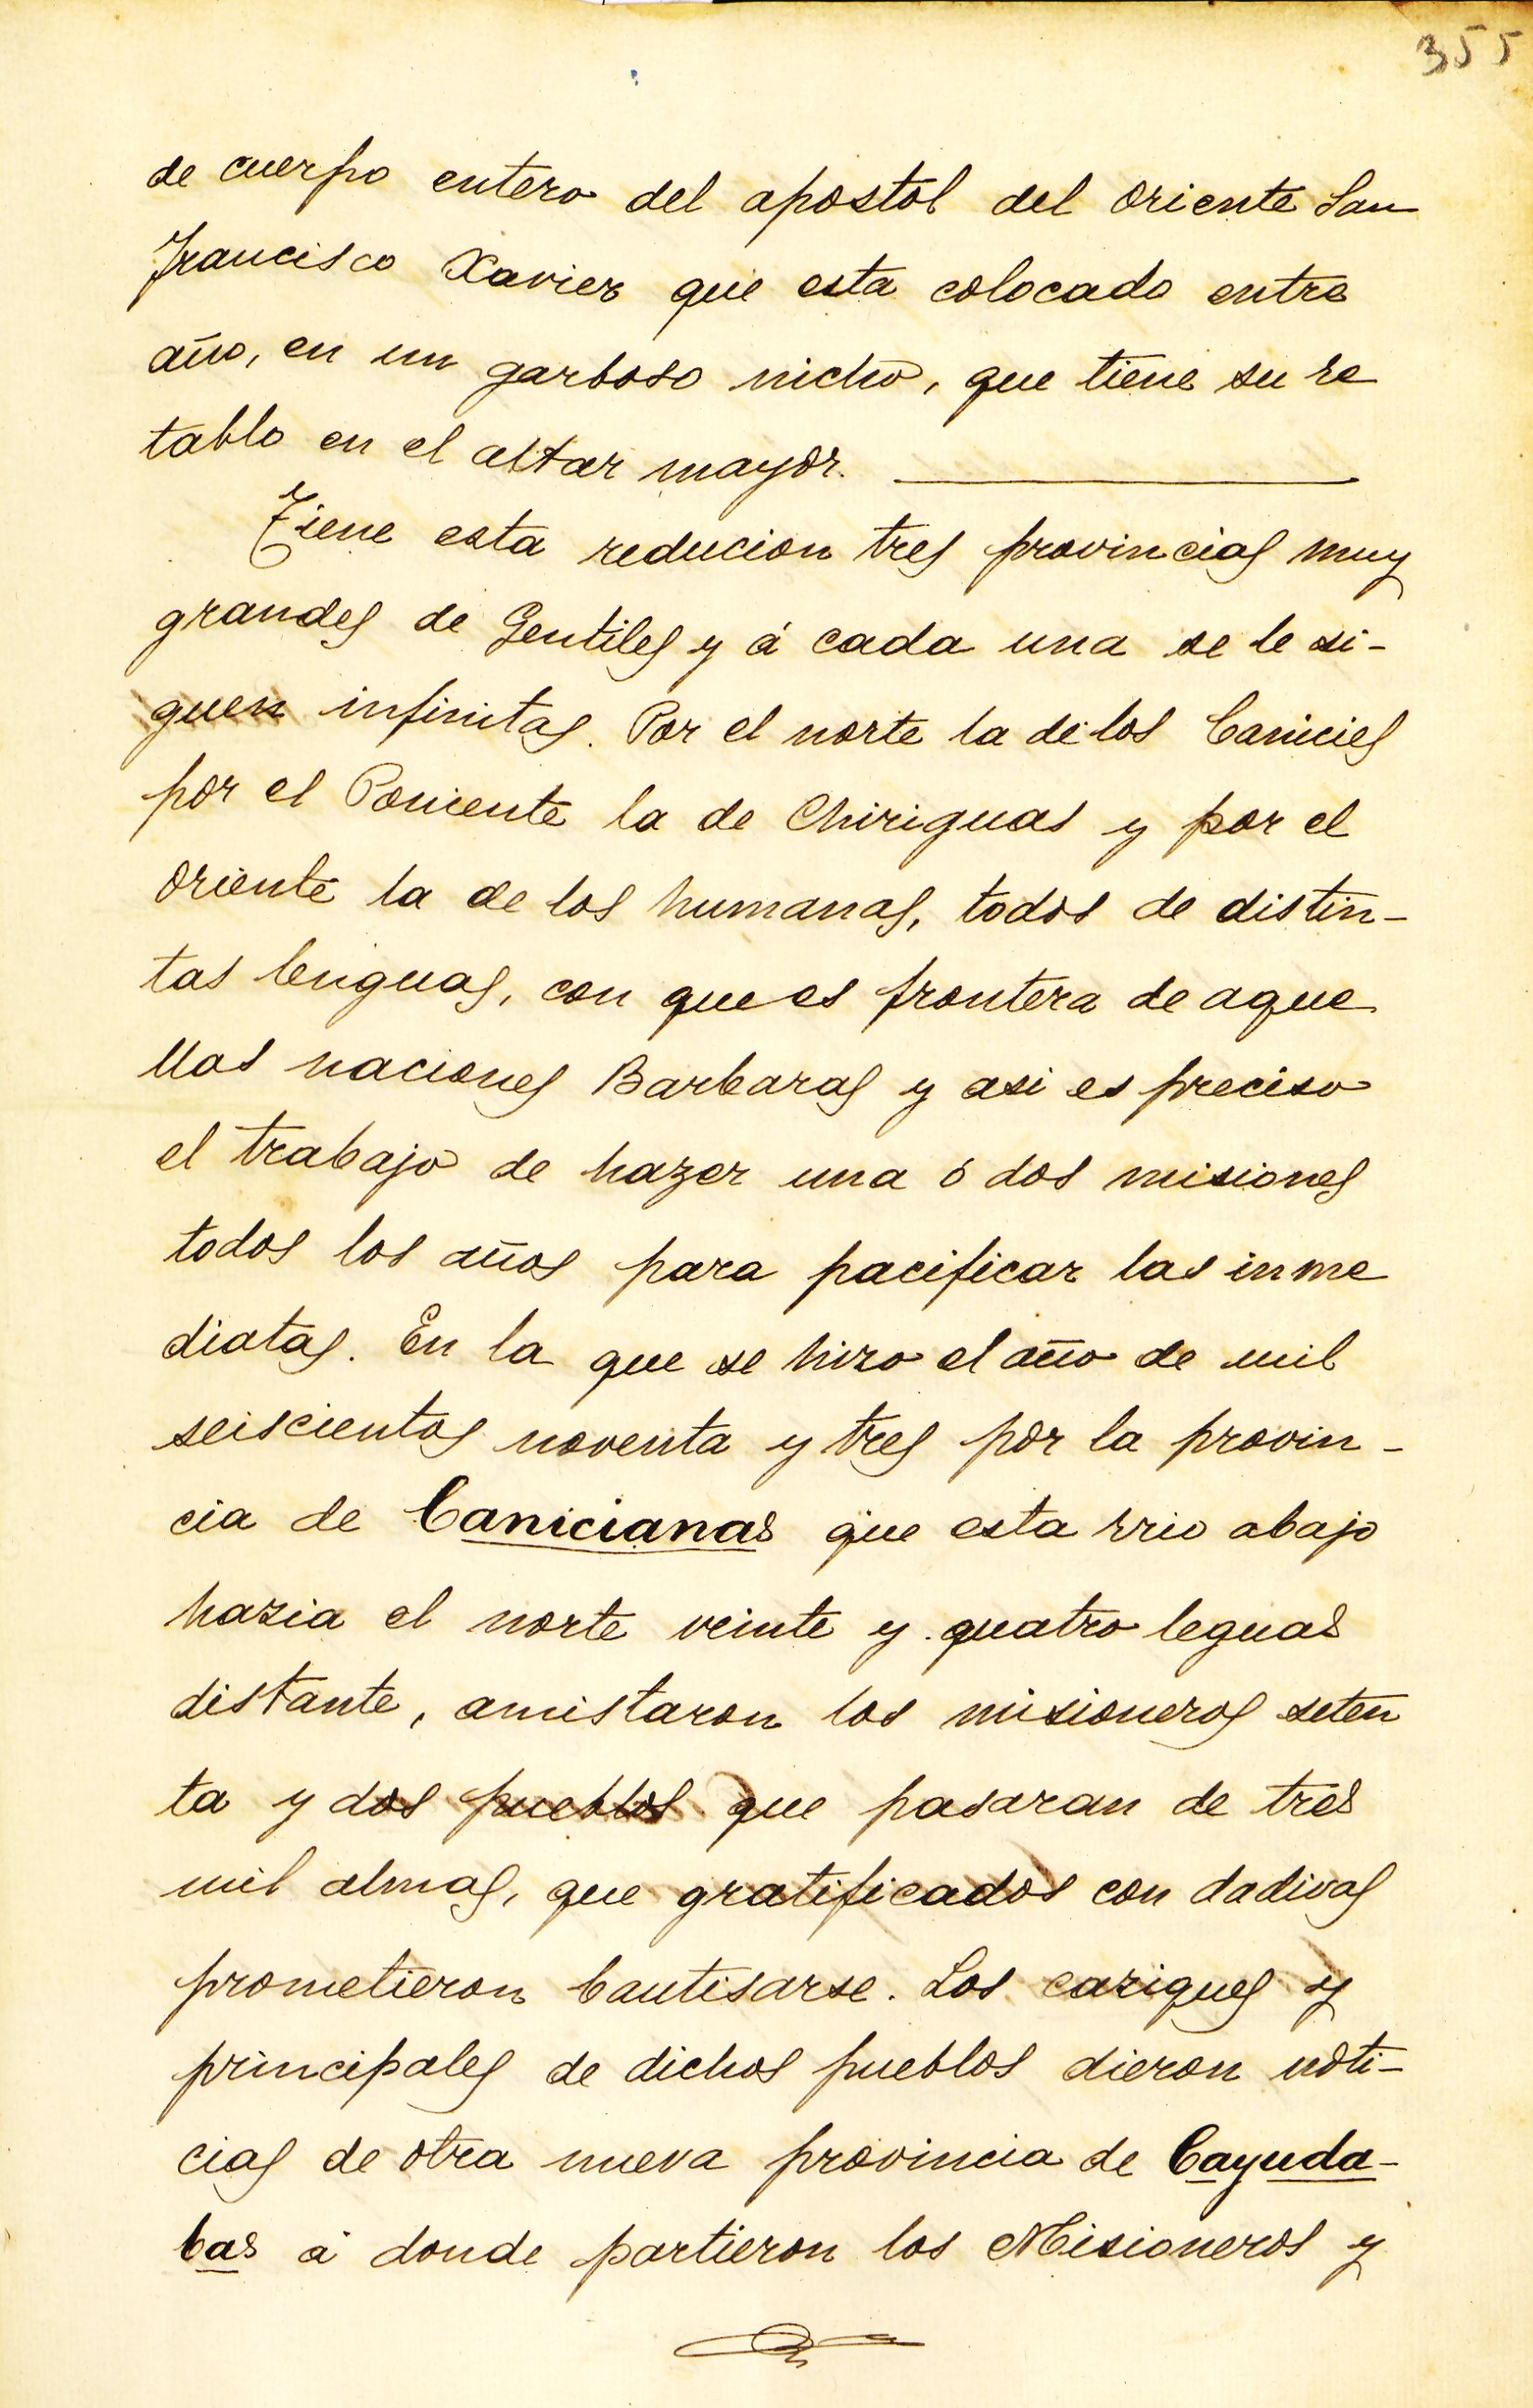 355
de cuerpo entero del apostol del Oriente San
Francisco Xavier que esta colocado entre
año, en un garboso nicho, que tiene su re
tablo en el altar mayor.
Tiene esta reducion tres provincias muy
grandes de Gentiles y á cada una se le si-
guen infinitas. Por el norte la de los Canicies
por el Poniente la de Chiriguas y por el
Oriente la de los humanas, todos de distin-
tas lenguas, con que es frontera de aque
llas naciones Barbaras y asi es preciso
el trabajo de hazer una ó dos misiones
todos los años para pacificar las inme
diatas. En la que se hizo el año de mil
seiscientos noventa y tres por la provin-
cia de Canicianas que esta rrio abajo
hazia el norte veinte y quatro leguas
distante, amistaron los misioneros seten
ta y dos pueblos que pasaran de tres
mil almas, que gratificados con dadivas
prometieron bautisarse. Los caziques y
principales de dichos pueblos dieron noti-
cias de otra nueva provincia de Cayuda-
bas á donde partieron los Misioneros y